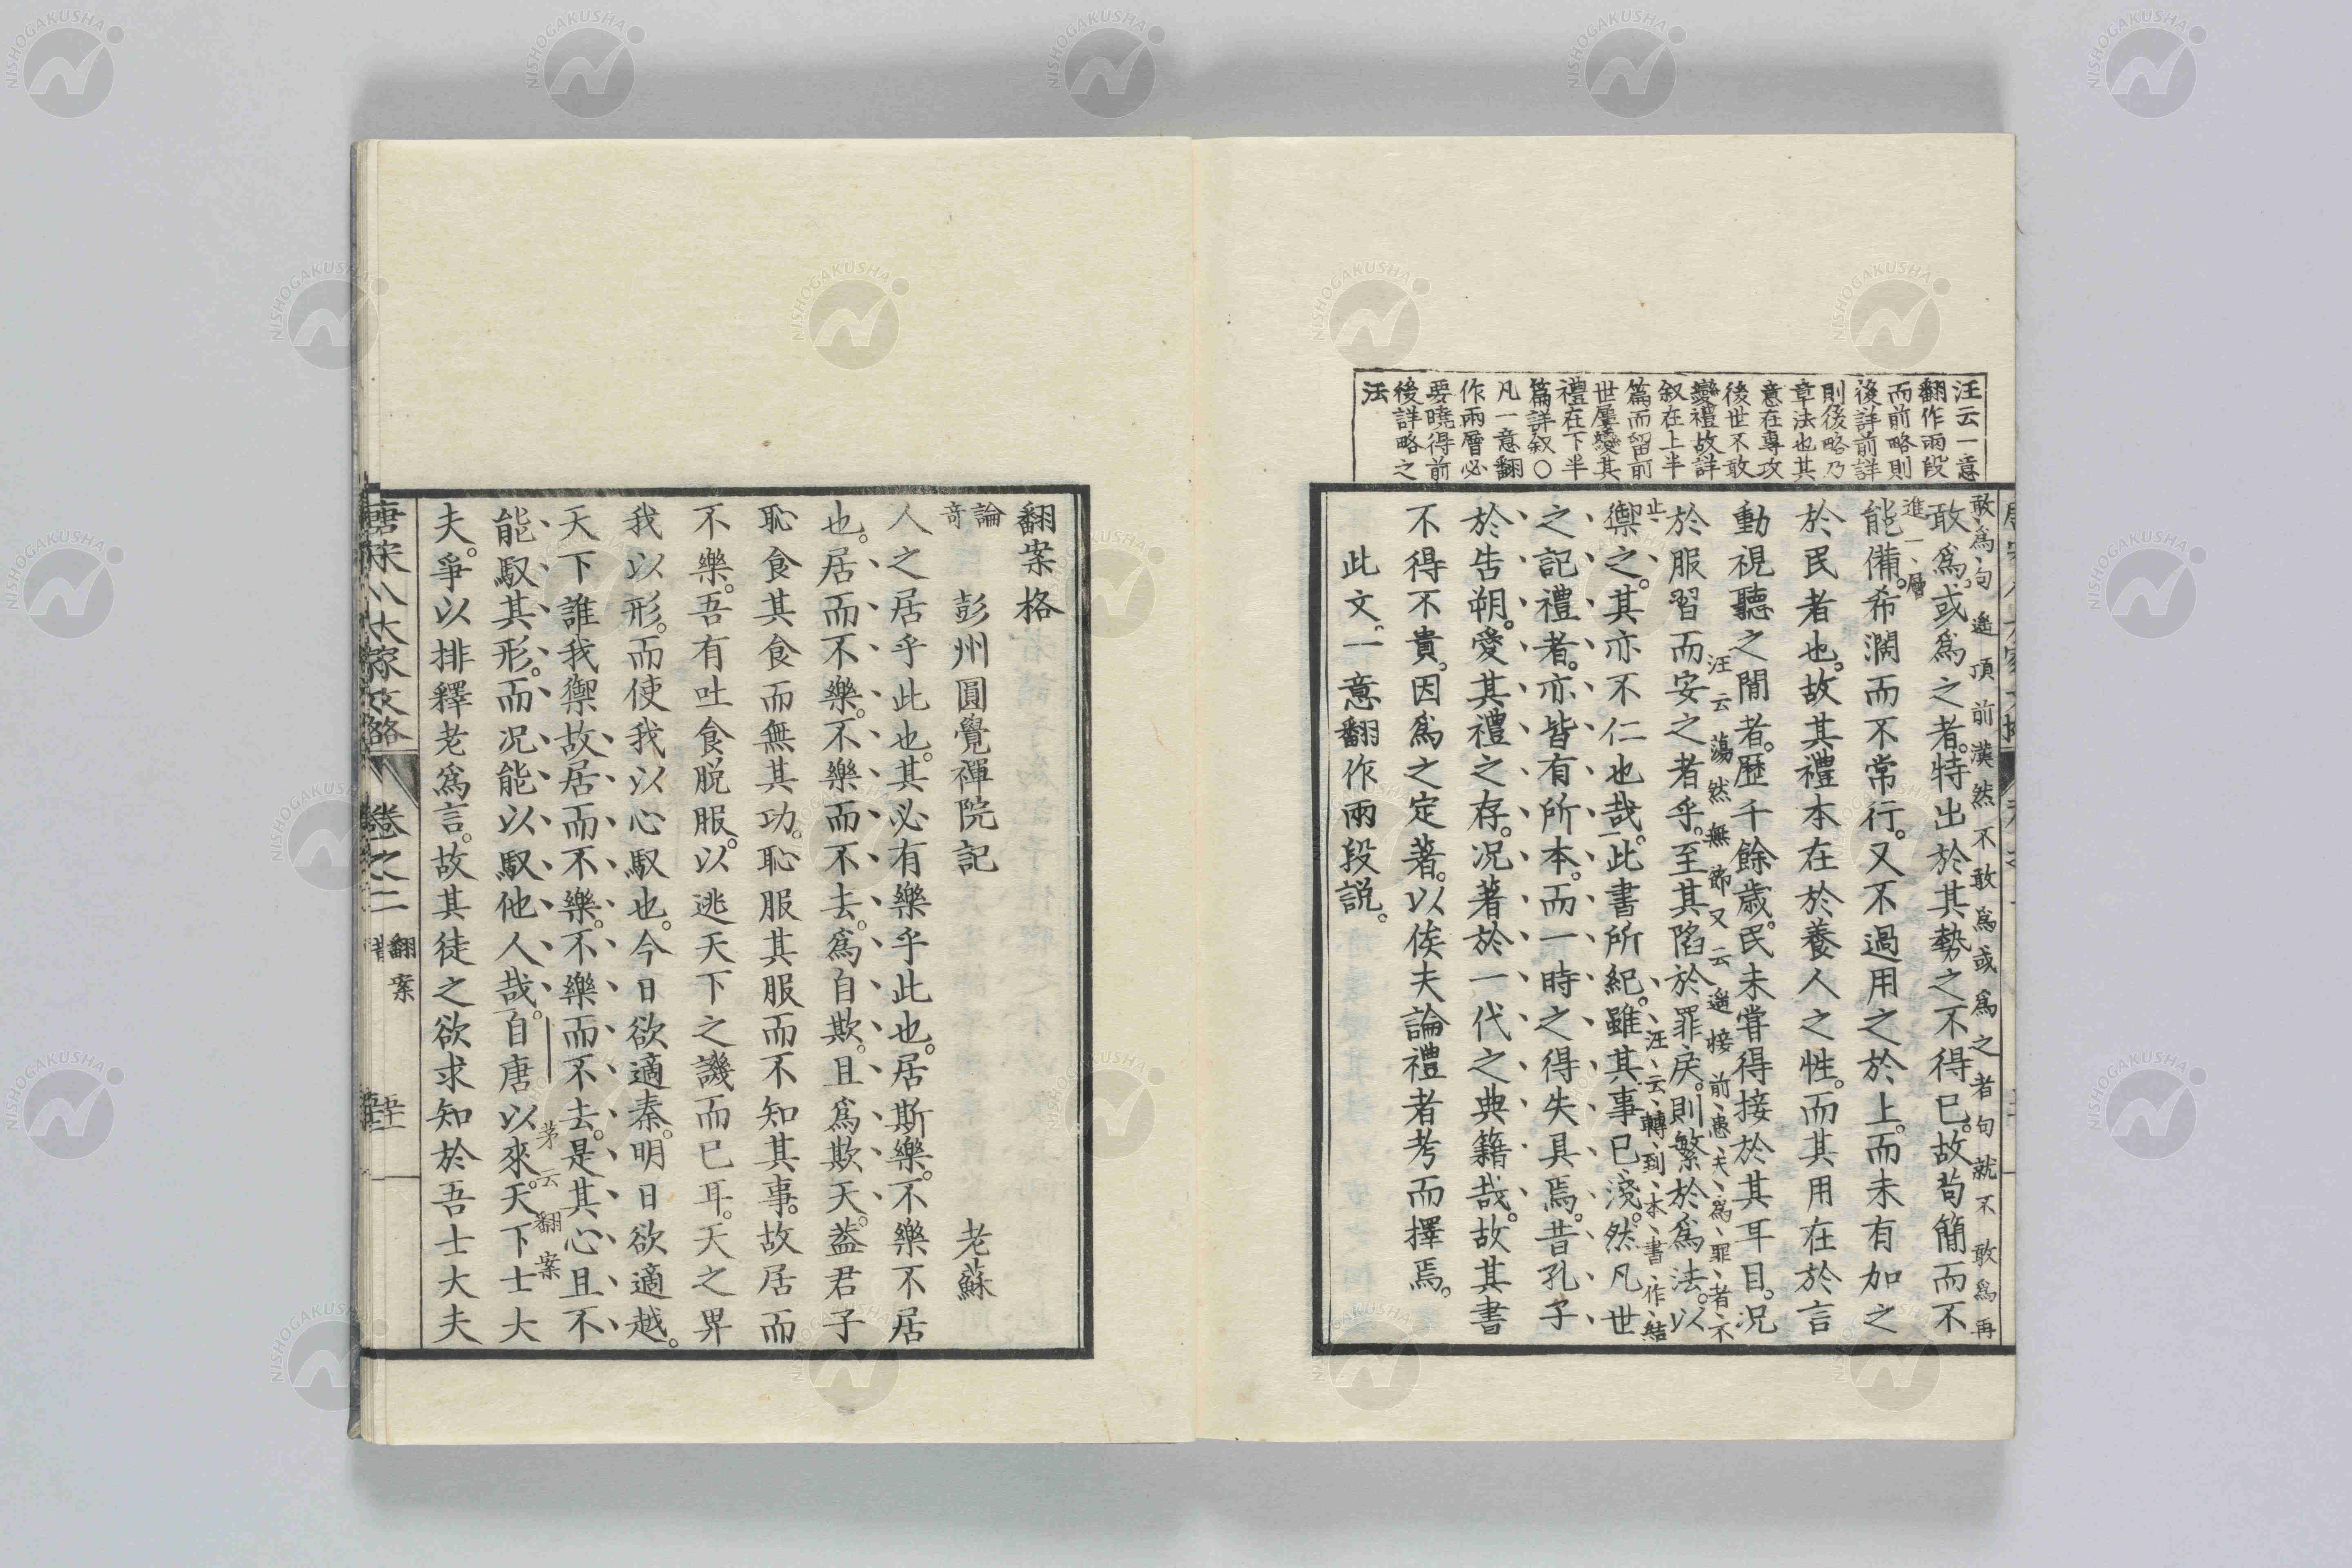 汪云一意
翻作兩段
而前略則
後詳前詳
則後略乃
章法也其
意在專攻
後世不敢
變禮故詳
叙在上半
篇而留前
世屢變其
禮在下半
篇詳叙○
凡一意翻
作兩層必
要曉得前
後詳略之
法
敢爲句遙頂前漢然不敢爲或爲之者句就不敢爲再
進一層
敢爲。或爲之者。特出於其勢之不得已。故苟簡而不
能備。希濶而不常行。又不過用之於上。而未有加之
於民者也。故其禮本在於養人之性。而其用在於言
動視聽之間者。歷千餘歲。民未嘗得接於其耳目。况
汪云蕩然無節又云遙接前患夫爲罪者不
止
於服習而安之者乎。至其陷於罪戾。則繁於爲法。以
禦之。其亦不仁也哉。此書所紀。雖其事已淺。然凡世
汪云轉到本書作結
之記禮者。亦皆有所本。而一時之得失具焉。昔孔子
於告朔。愛其禮之存。况著於一代之典籍哉。故其書
不得不貴。因爲之定著。以俟夫論禮者考而擇焉。
此文。一意翻作兩段説。
翻案格
論奇 彭州圓覺禪院記 老蘇
人之居乎此也。其必有樂乎此也。居斯樂。不樂不居
也。居而不樂。不樂而不去。爲自欺。且爲欺天。蓋君子
恥食其食而無其功。恥服其服而不知其事。故居而
不樂。吾有吐食脱服。以逃天下之譏而已耳。天之畀
我以形。而使我以心馭也。今日欲適秦。明日欲適越。
天下誰我禦故居而不樂。不樂而不去。是其心且不
能馭其形。而况能以馭他人哉。自唐以來。天下士大
茅云翻案
夫。爭以排釋老爲言。故其徒之欲求知於吾士大夫
唐宋八大家文略 卷之二 翻案